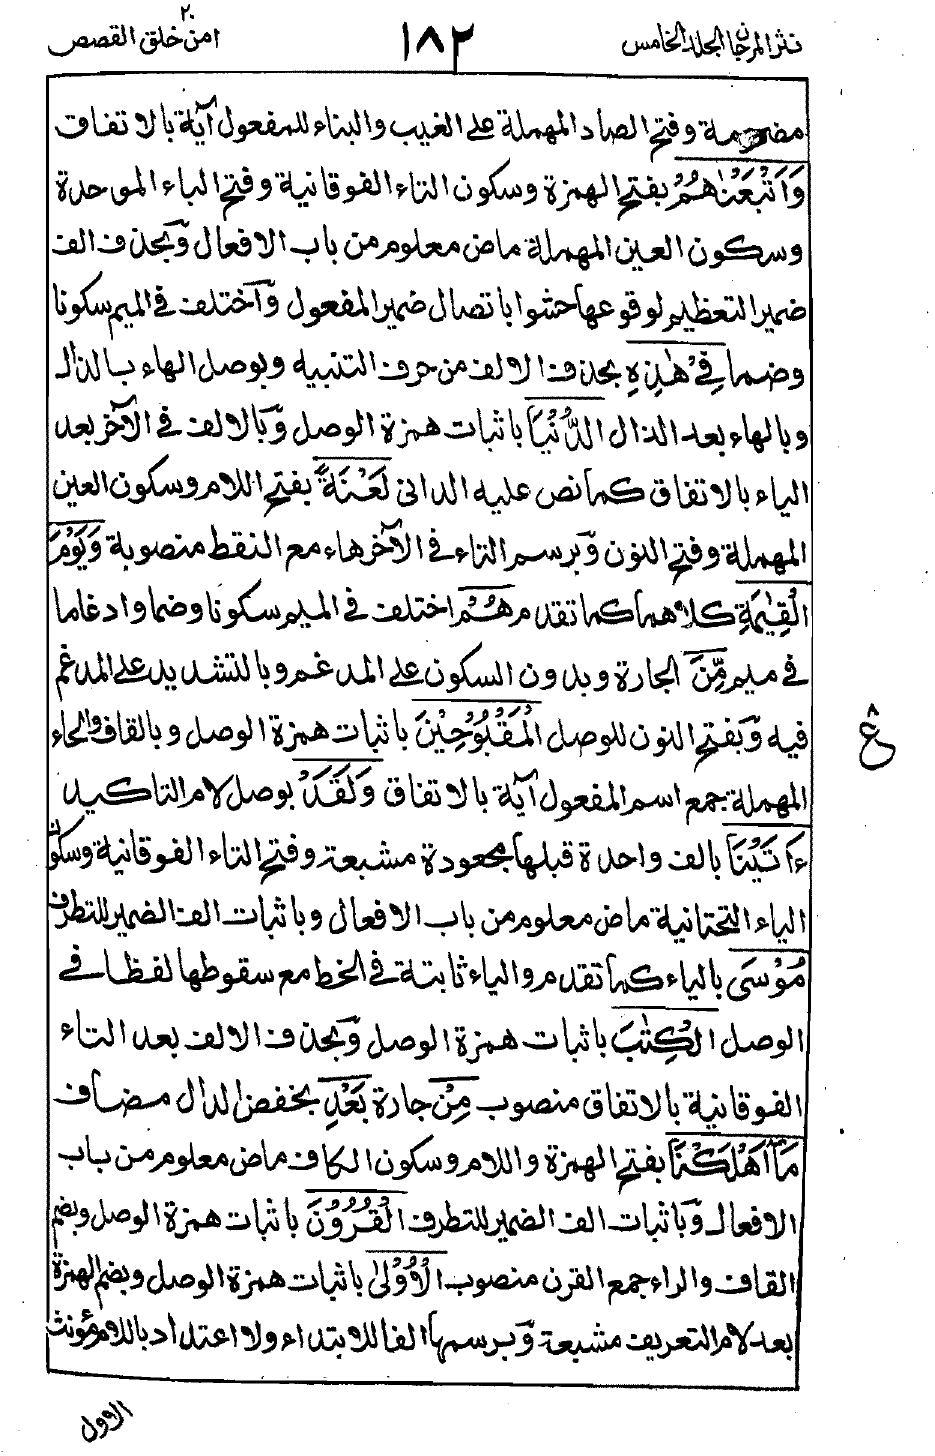 نثر المرجان الجلد الخامس
١٨٢
٢٠
امن خلق القصص
مضمومة وفتح الصاد المهملة على الغيب والبناء للمفعول آية بالاتفاق
وَاَتْبَعْنٰهُمْ بفتح الهمزة وسكون التاء الفوقانية وفتح الباء الموحدة
وسكون العين المهملة ماض معلوم من باب الافعال وبحذف الف
ضمير التعظيم لوقوعها حشوا باتصال ضمير المفعول واختلف في الميم سكونا
وضما فِيْ هٰذِهِ بحذف الالف من حرف التنبيه وبوصل الهاء بالذال
وبالهاء بعد الذال الدُّنْيَا باثبات همزة الوصل وبالالف في الآخر بعد
الياء بالاتفاق كما نص عليه الداني لَعْنَةً بفتح اللام وسكون العين
المهملة وفتح النون وبرسم التاء في الآخر هاء مع النقط منصوبة وَيَوْمَ
الْقِيٰمَةِ كلاهما كما تقدم هُمْ اختلف في الميم سكونا وضما وادغاما
في ميم مِّنَ الجارة وبدون السكون على المدغم وبالتشديد على المدغم
فيه وبفتح النون للوصل الْمَقْبُوْحِيْنَ باثبات همزة الوصل وبالقاف والحاء
المهملة جمع اسم المفعول آية بالاتفاق وَلَقَدْ بوصل لام التاكيد
ءَاتَيْنَا بالف واحدة قبلها مجعودة مشبعة وفتح التاء الفوقانية وسكون
الياء التحتانية ماض معلوم من باب الافعال وباثبات الف الضمير للتطرف
مُوْسَى بالياء كما تقدم والياء ثابتة في الخط مع سقوطها لفظا في
الوصل الْكِتٰبَ باثبات همزة الوصل وبحذف الالف بعد التاء
الفوقانية بالاتفاق منصوب مِنْ جارة بَعْدِ بخفض الدال مضاف
مَآ اَهْلَكْنَا بفتح الهمزة واللام وسكون الكاف ماض معلوم من باب
الافعال وباثبات الف الضمير للتطرف الْقُرُوْنَ باثبات همزة الوصل وبضم
القاف والراء جمع القرن منصوب الْاُوْلٰى باثبات همزة الوصل وبضم الهمزة
بعد لام التعريف مشبعة وبرسمها الفا للابتداء ولا اعتداد باللام مؤنث
الاول
٨
ع